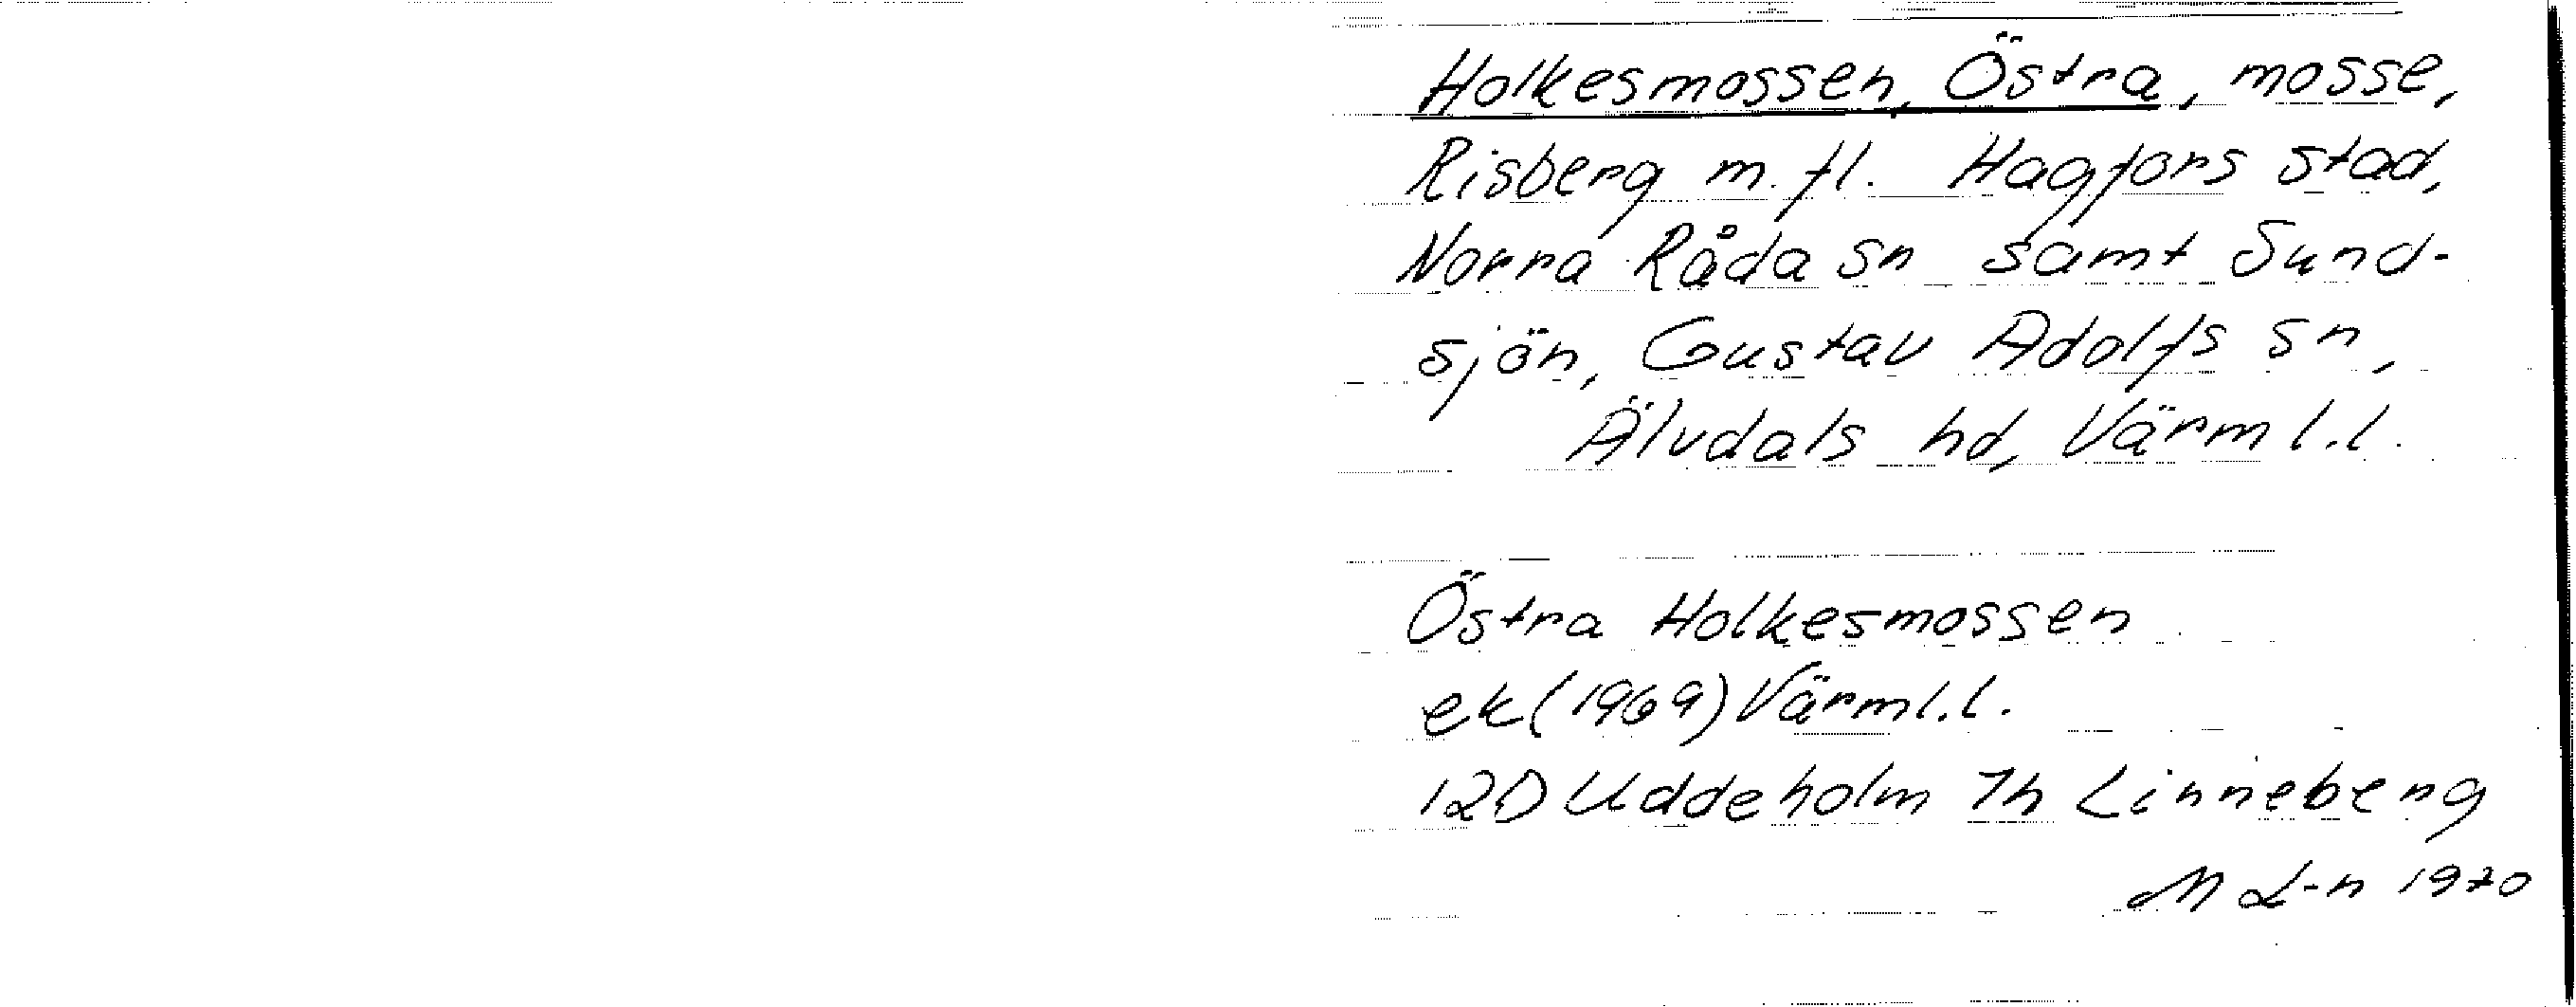 Holkesmossen, Östra, mosse,
Risberg m. fl. Hagfors stad,
Norra Råda sn samt Sund-
sjön, Gustav Adolfs sn,
Älvdals hd, Värml.l.
Östra Holkesmossen
ek (1969) Värml.l.
12D Uddeholm 7h Linneberg
M L-n 1970